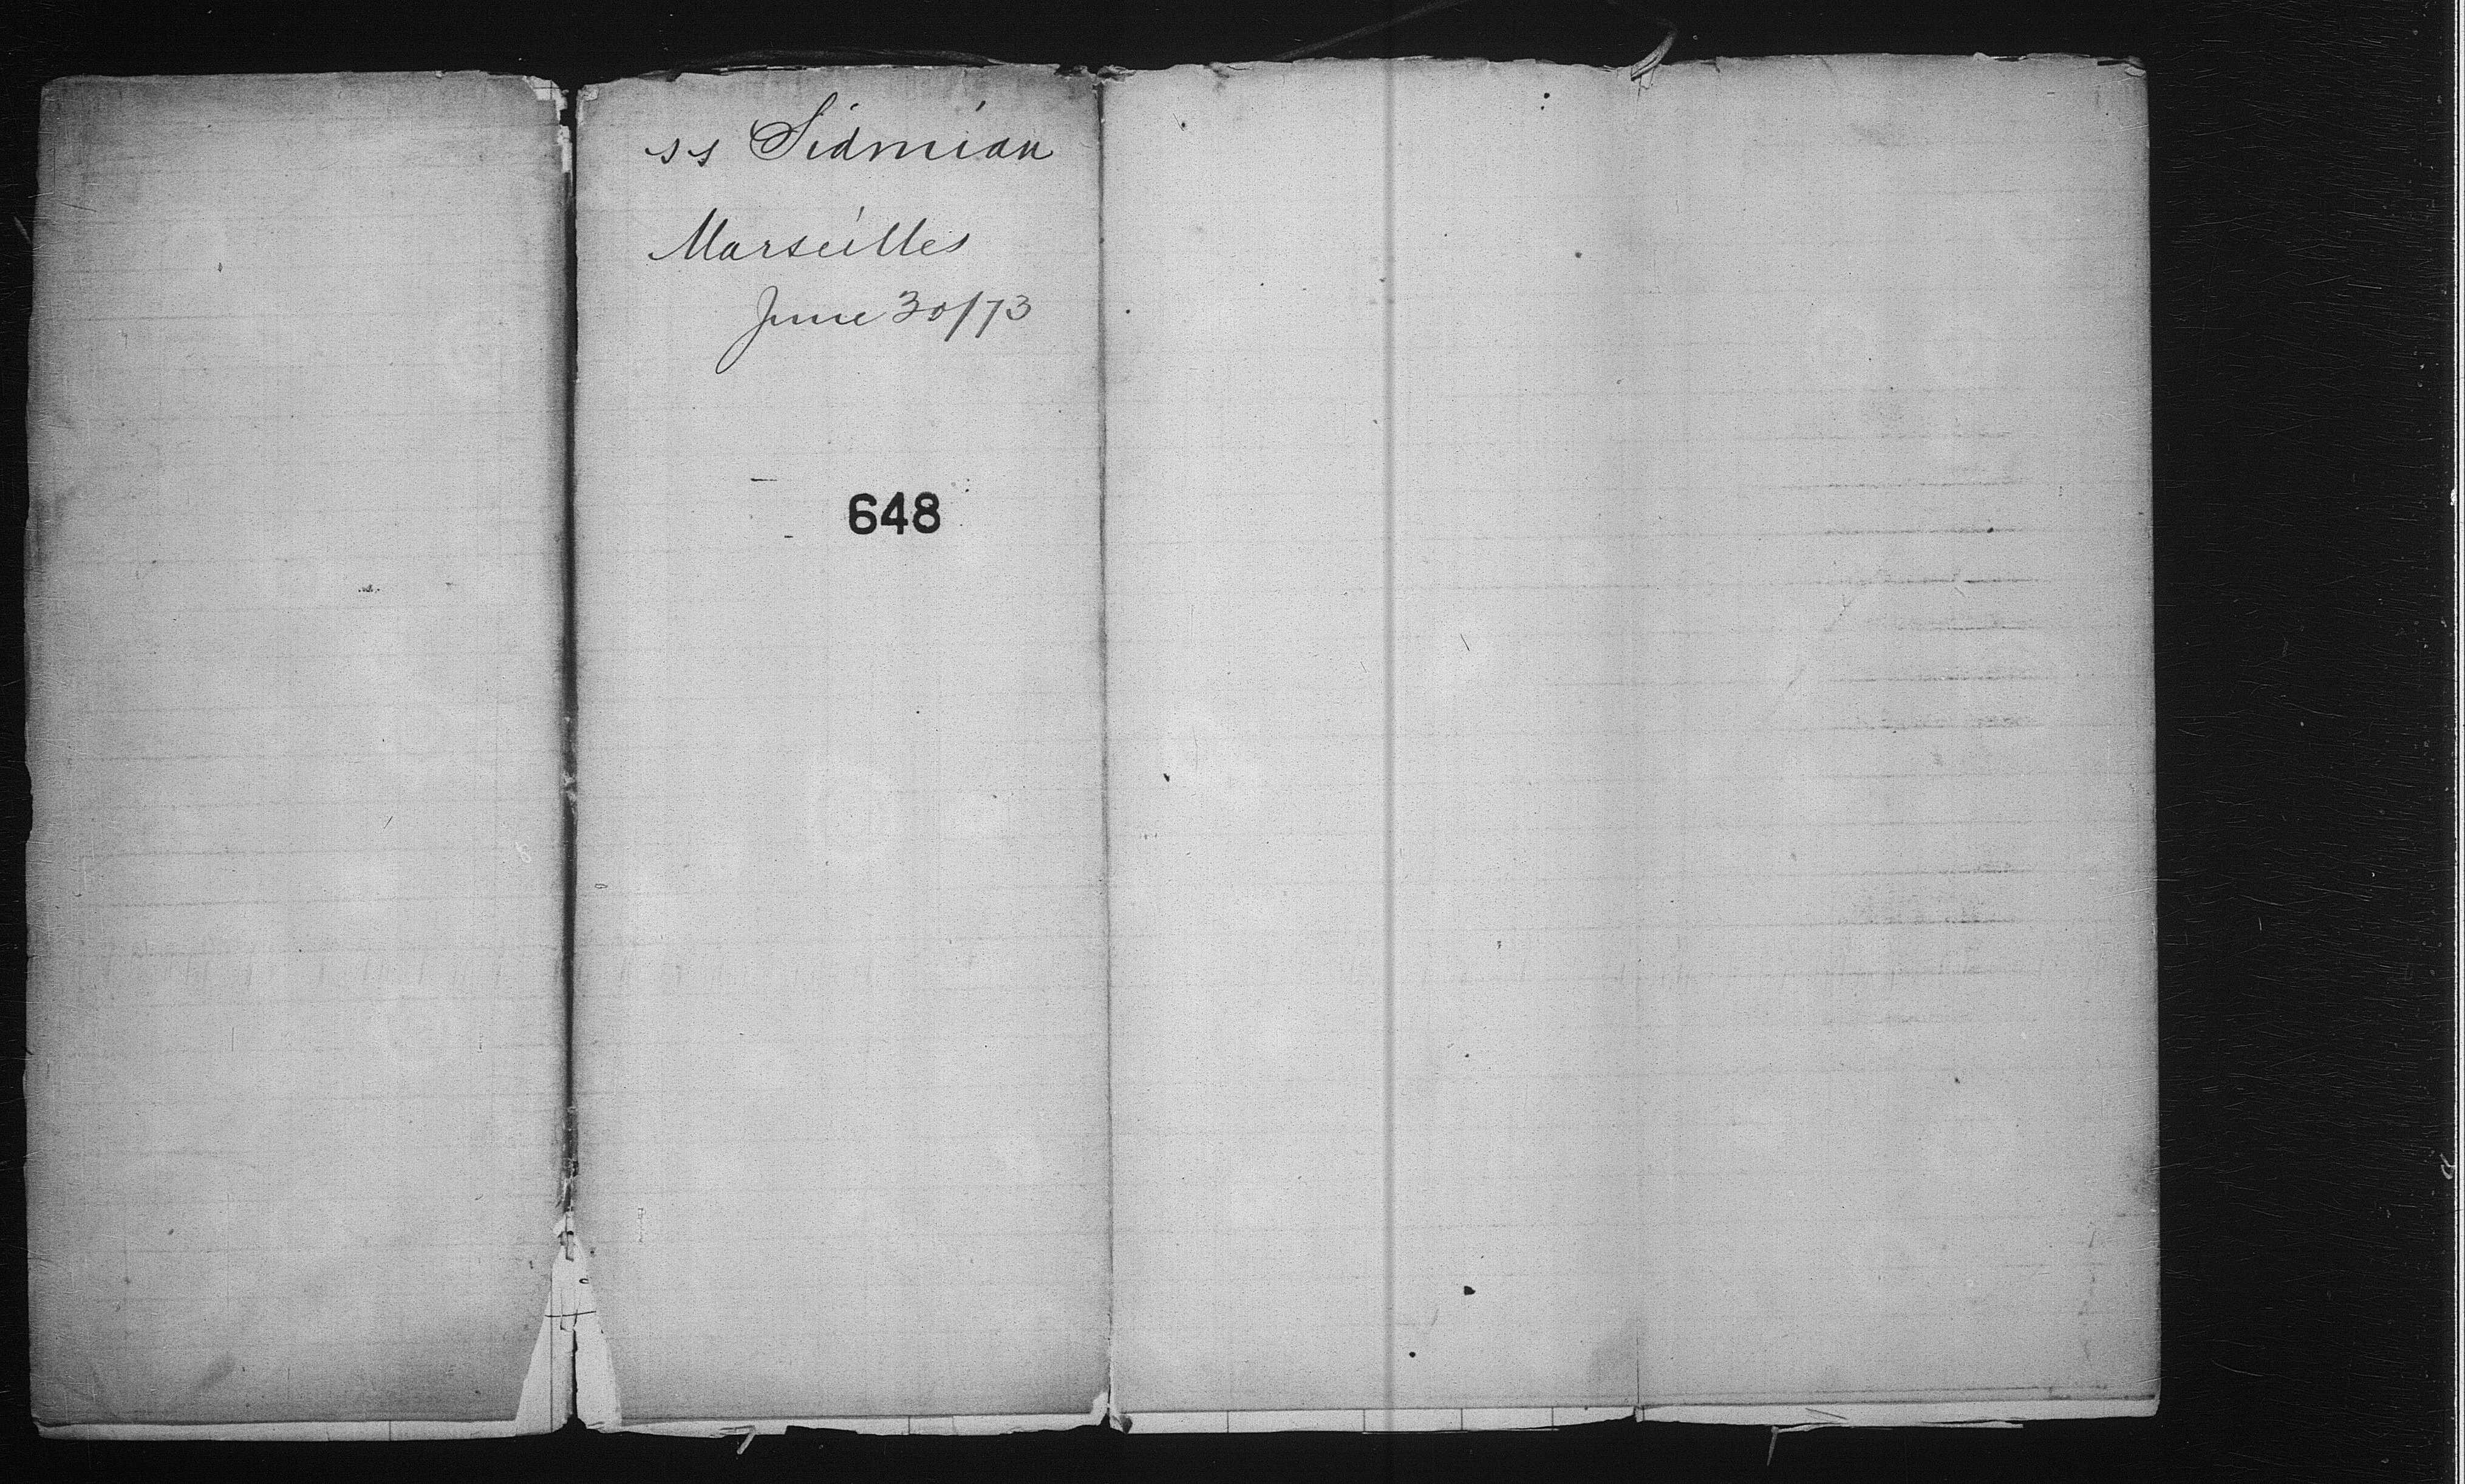 ss Sidmian
Marseilles
June 30/73
648